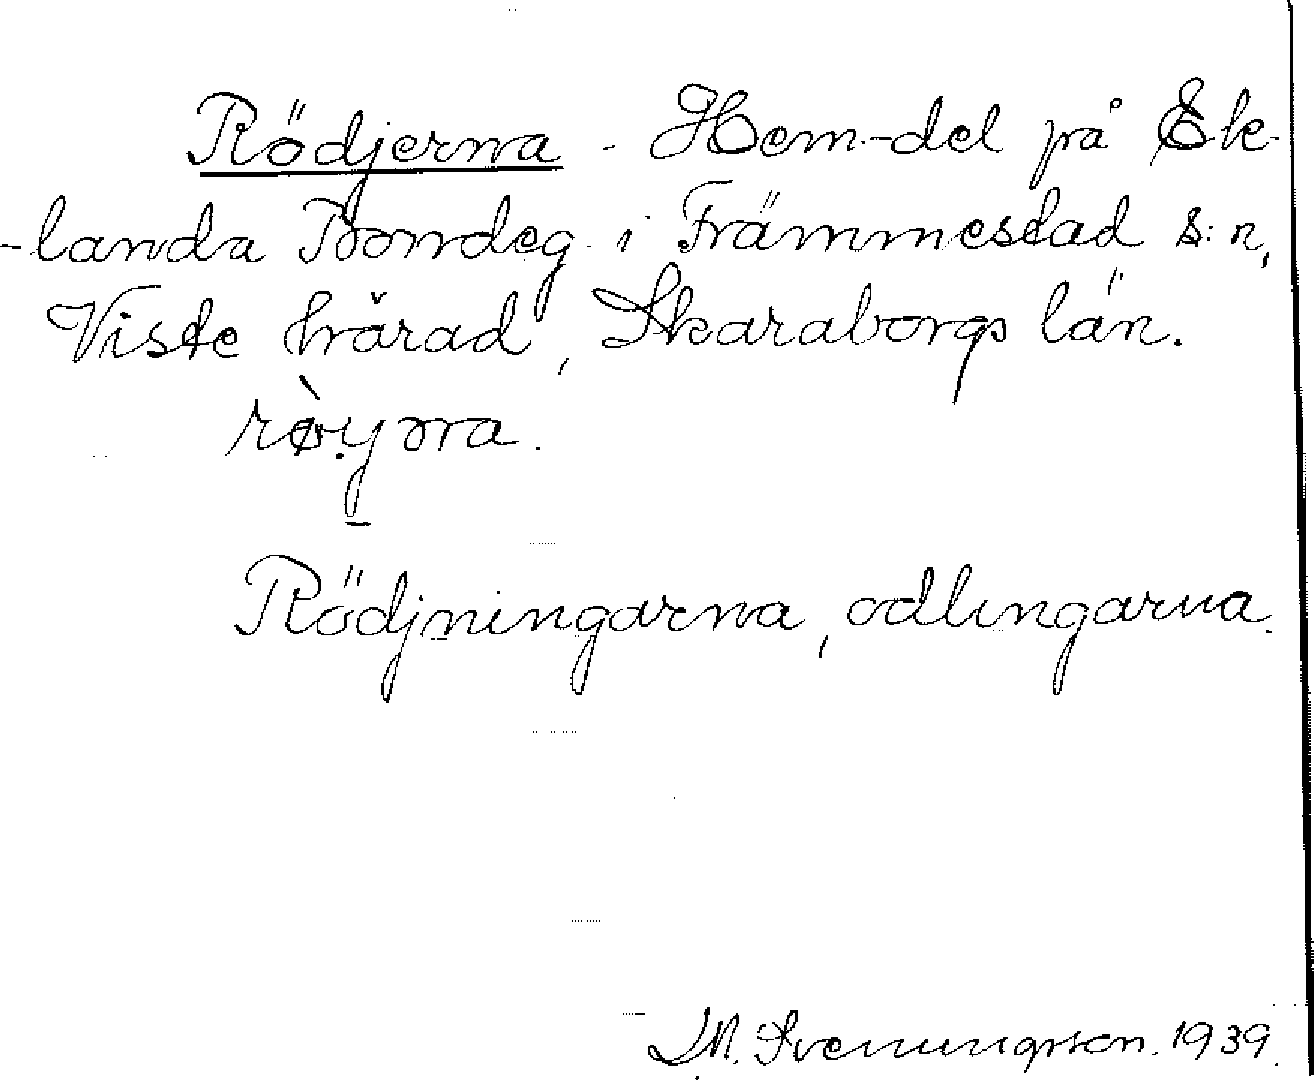 Rödjerna - Hem-del på Ek-
-landa Bondeg. i Främmestad s:n,
Viste härad, Skaraborgs län.
Rödjningarna, odlingarna.
Svenungsson. 1939.